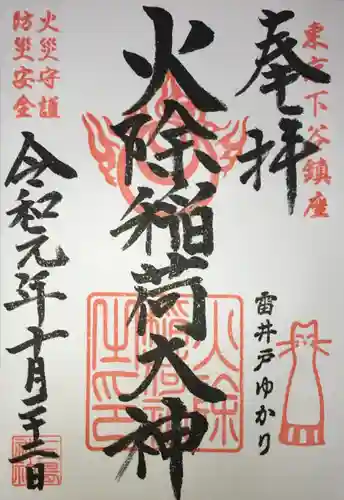 東京下谷鎮座
奉拝
雷井戸ゆかり
火除稲荷大神
火災守護
防災安全
令和元年十月二十二日